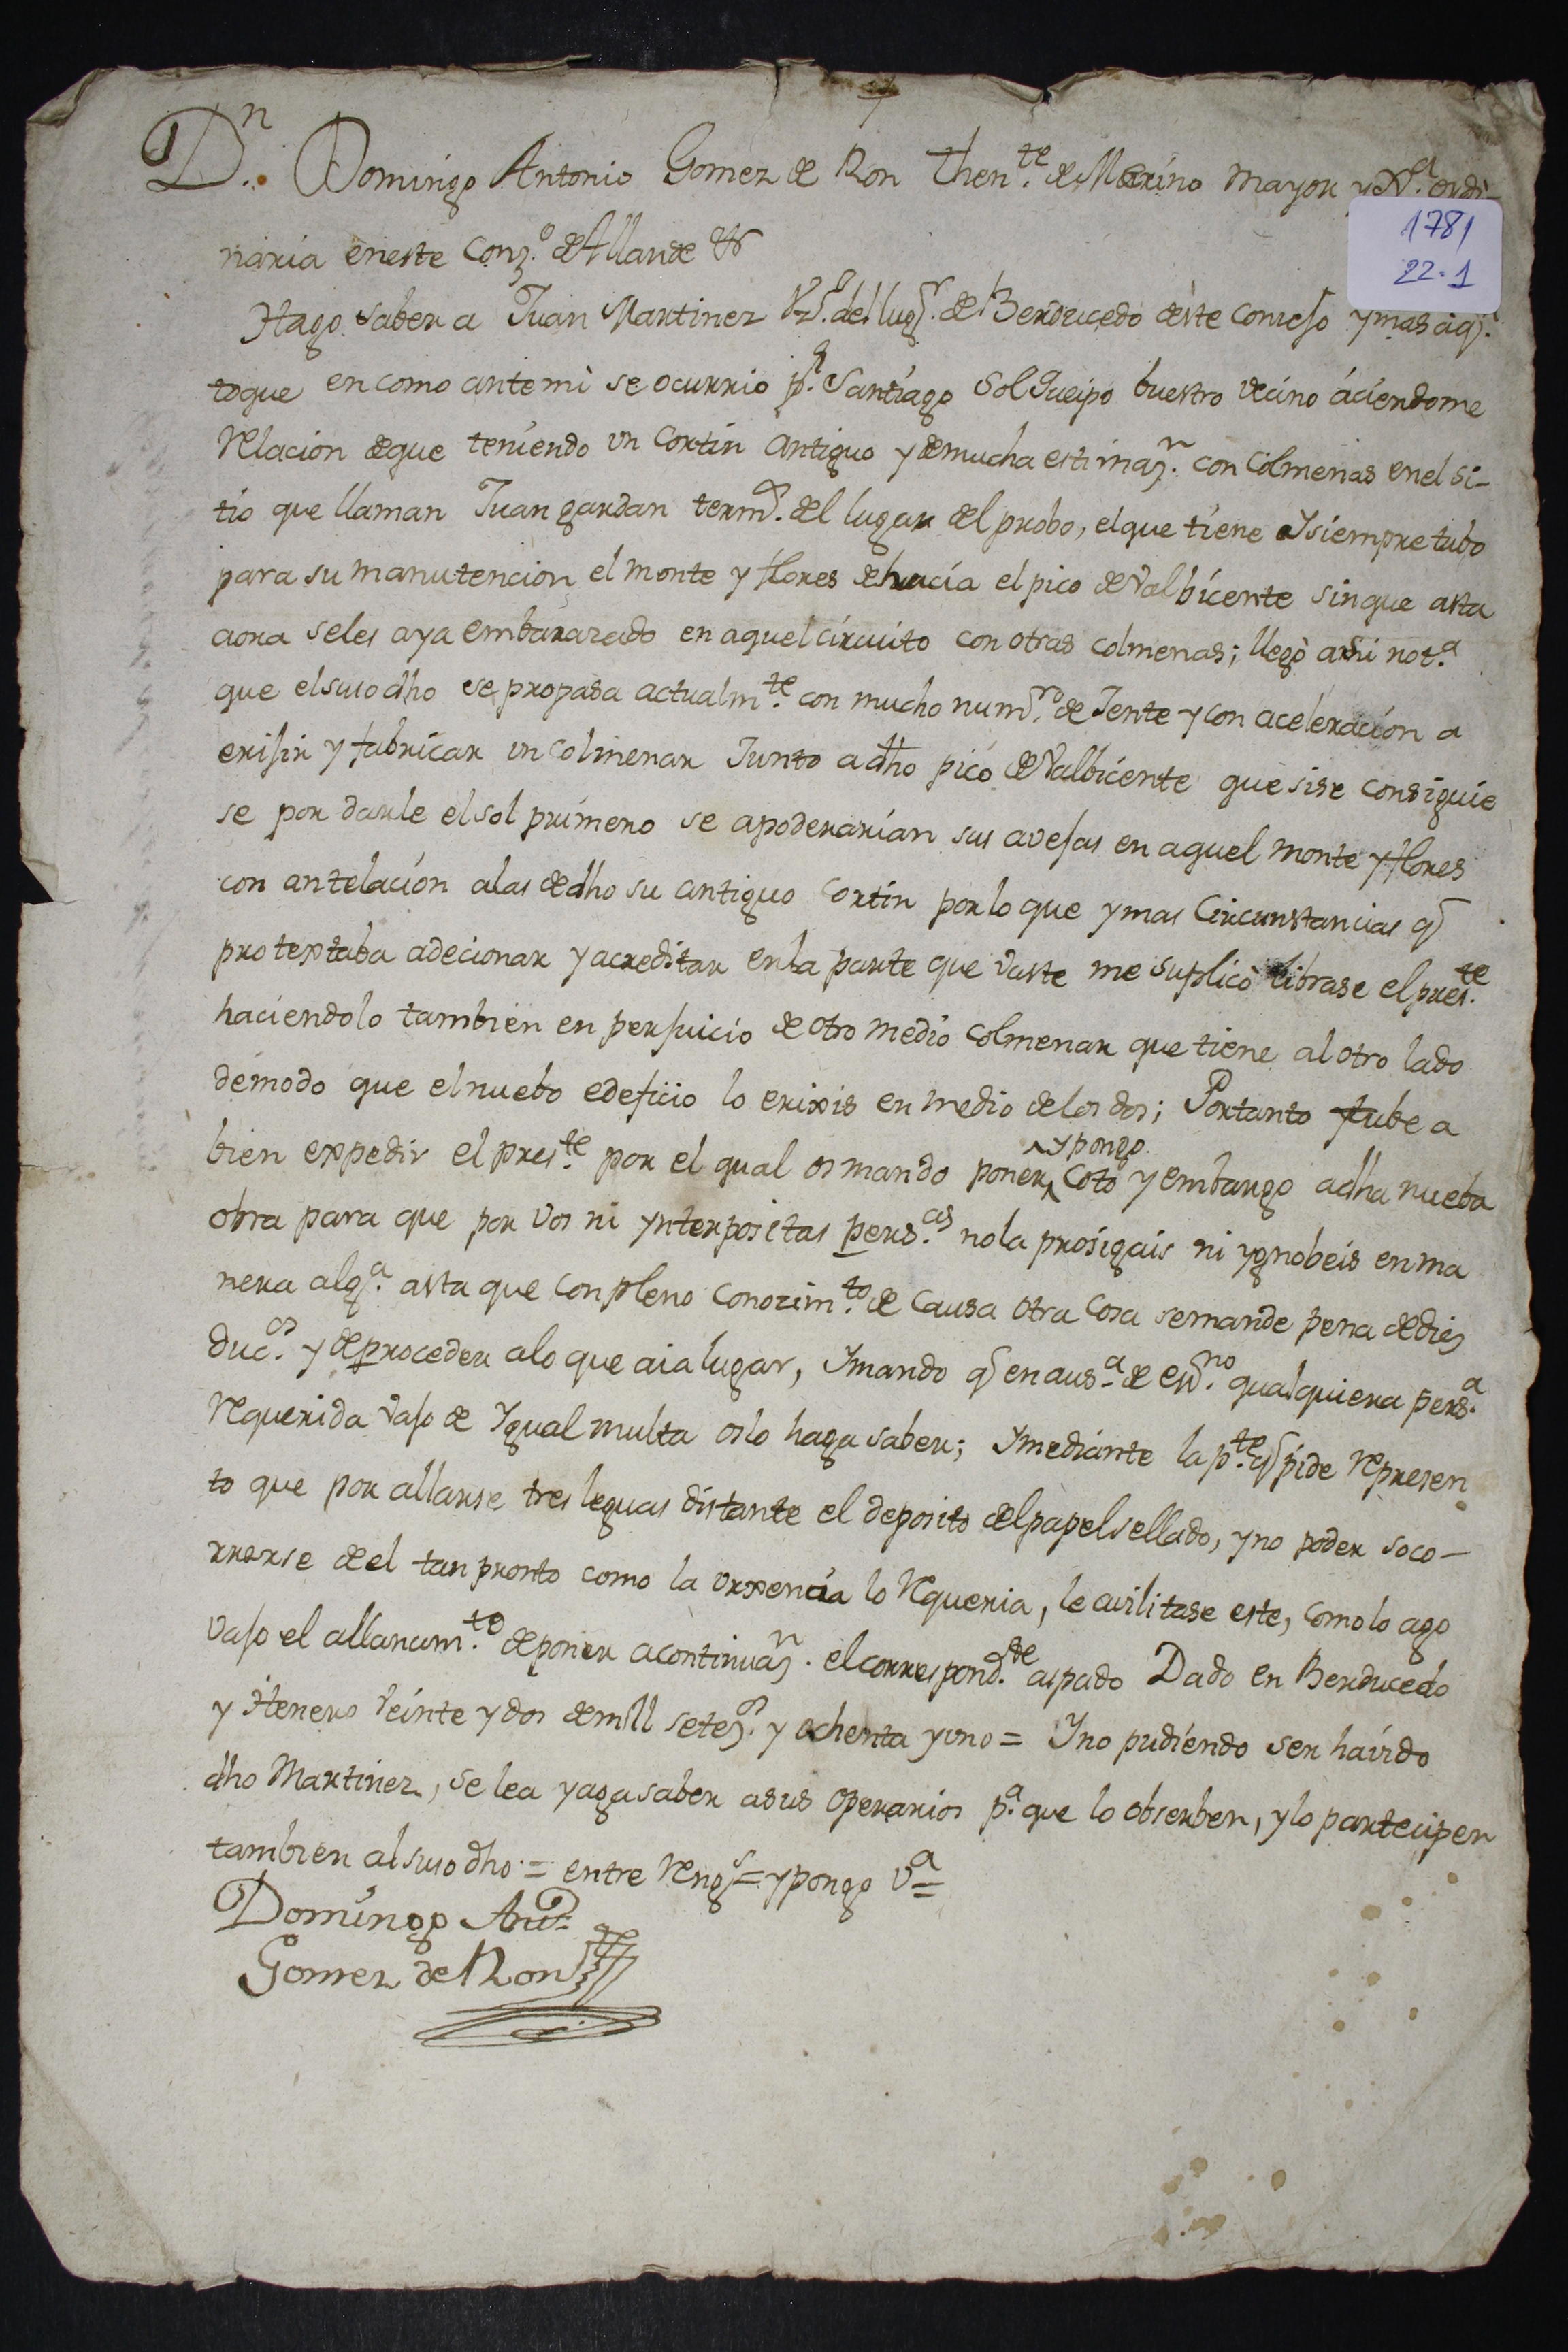 Dn. Domingo Antonio Gomez de Ron Thente. de Merino mayor y Xa. ordi-
naria eneste Conzo. de Allande &
1781
22-1
Hago saber a Juan Martinez Vzo. del lugr. de Berducedo deste conceso ymas aqn.
toque en como antemi se ocurrio pr. Santiago Sol Queipo buestro vecino aciendome
Relacion deque teniendo un Cortin antiguo y demucha estimazn. con Colmenas enel si-
tio que llaman Juan gardan termo. del lugar del probo, elque tiene Ysiempre tubo
para su manutencion el monte y flores dehacia el pico de Valbicente sinque asta
aora seles aya embarazado en aquel circuito con otras colmenas; llegò asu nota.
que elsuso dho se propasa actualmte. con mucho numro. de Jente y con aceleracion a
erisir y fabricar un Colmenar Junto a dho pico de Valbicente que sise consiguie
se por darle elsol primero se apoderarian sus avesas en aquel monte y flores
con antelacion alas de dho su antiguo Cortin porlo que ymas Circunstancias q
protextaba adecionar y acreditar enla parte que vaste me suplicò librase el preste.
haciendolo tambien en persuicio de otro medio Colmenar que tiene al otro lado
demodo que elnuebo edeficio lo erixis en medio delos dos; Portanto tube a
bien expedir el preste. por el qual os mando poner ypongo Coto y embargo adha nueba
obra para que por vos ni ynterpositas persas. nola prosigais ni ygnobeis enma
nera alga. asta que con pleno conozimto. de Causa otra Cosa semande pena de diez
ducos. y de proceder alo que aia lugar, Ymando q enausa. de esno. qualquiera persa.
Requerida vaso de Ygual multa oslo haga saber; Ymediante la pte. q pide Represen
to que por allarse tres leguas distante el deposito del papel sellado, yno poder soco-
rrerse de el tan pronto como la urxencia lo Requeria, le avilitase este, como lo ago
vaso el allanamto. deponer acontinuazn. el correspondte. aspado Dado en Berducedo
y Henero veinte y dos demill setezos. y ochenta yuno = Yno pudiendo ser havido
dho Martinez, se lea yaga saber asus operarios pa. que lo obserben, ylo partecipen
tambien alsuso dho = entre Rengs = ypongo va =
Domingo Anto.
Gomez de Ron